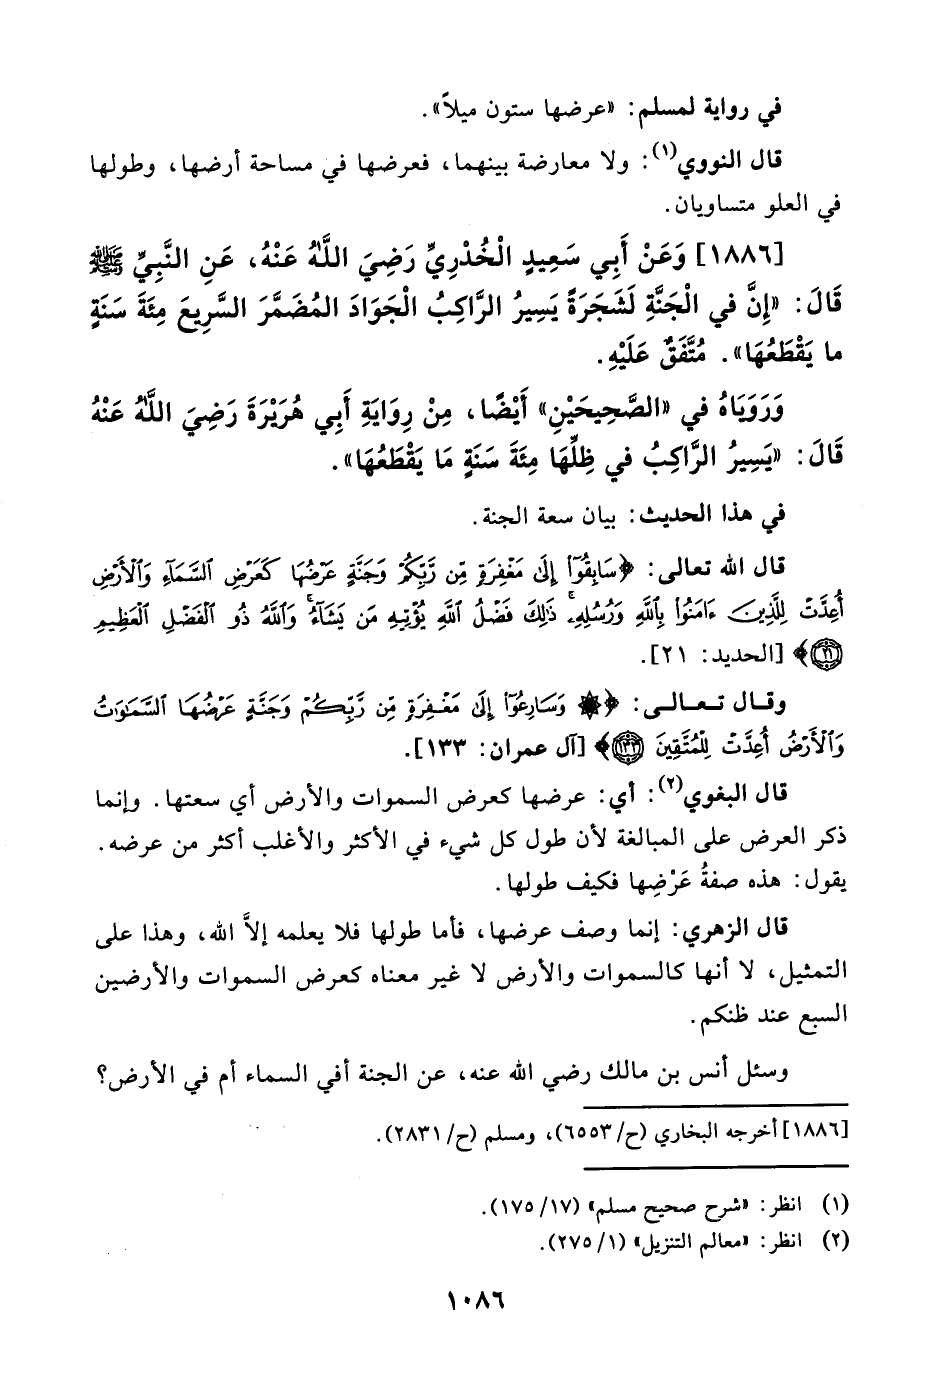 في رواية لمسلم: «عرضها ستون ميلاً».
قال النووي(١): ولا معارضة بينهما، فعرضها في مساحة أرضها، وطولها
في العلو متساويان.
[١٨٨٦] وَعَنْ أَبِي سَعِيدٍ الْخُدْرِيِّ رَضِيَ اللَّهُ عَنْهُ، عَنِ النَّبِيِّ ﷺ
قَالَ: «إِنَّ في الْجَنَّةِ لَشَجَرَةً يَسِيرُ الرَّاكِبُ الْجَوَادَ المُضَمَّرَ السَّرِيعَ مِئَةَ سَنَةٍ
ما يَقْطَعُهَا». مُتَّفَقٌ عَلَيْهِ.
وَرَوَيَاهُ في «الصَّحِيحَيْنِ» أَيْضًا، مِنْ رِوَايَةِ أَبِي هُرَيْرَةَ رَضِيَ اللَّهُ عَنْهُ
قَالَ: «يَسِيرُ الرَّاكِبُ في ظِلِّهَا مِئَةَ سَنَةٍ مَا يَقْطَعُهَا».
في هذا الحديث: بيان سعة الجنة.
قال الله تعالى: ﴿سَابِقُوٓا۟ إِلَىٰ مَغْفِرَةٍ مِّن رَّبِّكُمْ وَجَنَّةٍ عَرْضُهَا كَعَرْضِ ٱلسَّمَآءِ وَٱلْأَرْضِ
أُعِدَّتْ لِلَّذِينَ ءَامَنُوا۟ بِٱللَّهِ وَرُسُلِهِۦۚ ذَٰلِكَ فَضْلُ ٱللَّهِ يُؤْتِيهِ مَن يَشَآءُۚ وَٱللَّهُ ذُو ٱلْفَضْلِ ٱلْعَظِيمِ
(٢١)﴾ [الحديد: ٢١].
وقال تعالى: ﴿۞ وَسَارِعُوٓا۟ إِلَىٰ مَغْفِرَةٍ مِّن رَّبِّكُمْ وَجَنَّةٍ عَرْضُهَا ٱلسَّمَٰوَٰتُ
وَٱلْأَرْضُ أُعِدَّتْ لِلْمُتَّقِينَ (١٣٣)﴾ [آل عمران: ١٣٣].
قال البغوي(٢): أي: عرضها كعرض السموات والأرض أي سعتها. وإنما
ذكر العرض على المبالغة لأن طول كل شيء في الأكثر والأغلب أكثر من عرضه.
يقول: هذه صفةُ عَرْضِها فكيف طولها.
قال الزهري: إنما وصف عرضها، فأما طولها فلا يعلمه إلاَّ الله، وهذا على
التمثيل، لا أنها كالسموات والأرض لا غير معناه كعرض السموات والأرضين
السبع عند ظنكم.
وسئل أنس بن مالك رضي الله عنه، عن الجنة أفي السماء أم في الأرض؟
[١٨٨٦] أخرجه البخاري (ح/٦٥٥٣)، ومسلم (ح/٢٨٣١).
(١) انظر: «شرح صحيح مسلم» (١٧/١٧٥).
(٢) انظر: «معالم التنزيل» (١/٢٧٥).
١٠٨٦